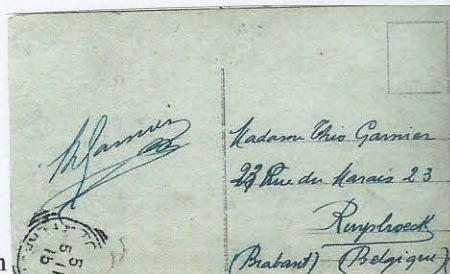 Th Garnier
Madame Théo Garnier
23 Rue du Marais 23
Ruysbroeck
(Brabant) (Belgique)
5 11
15
n